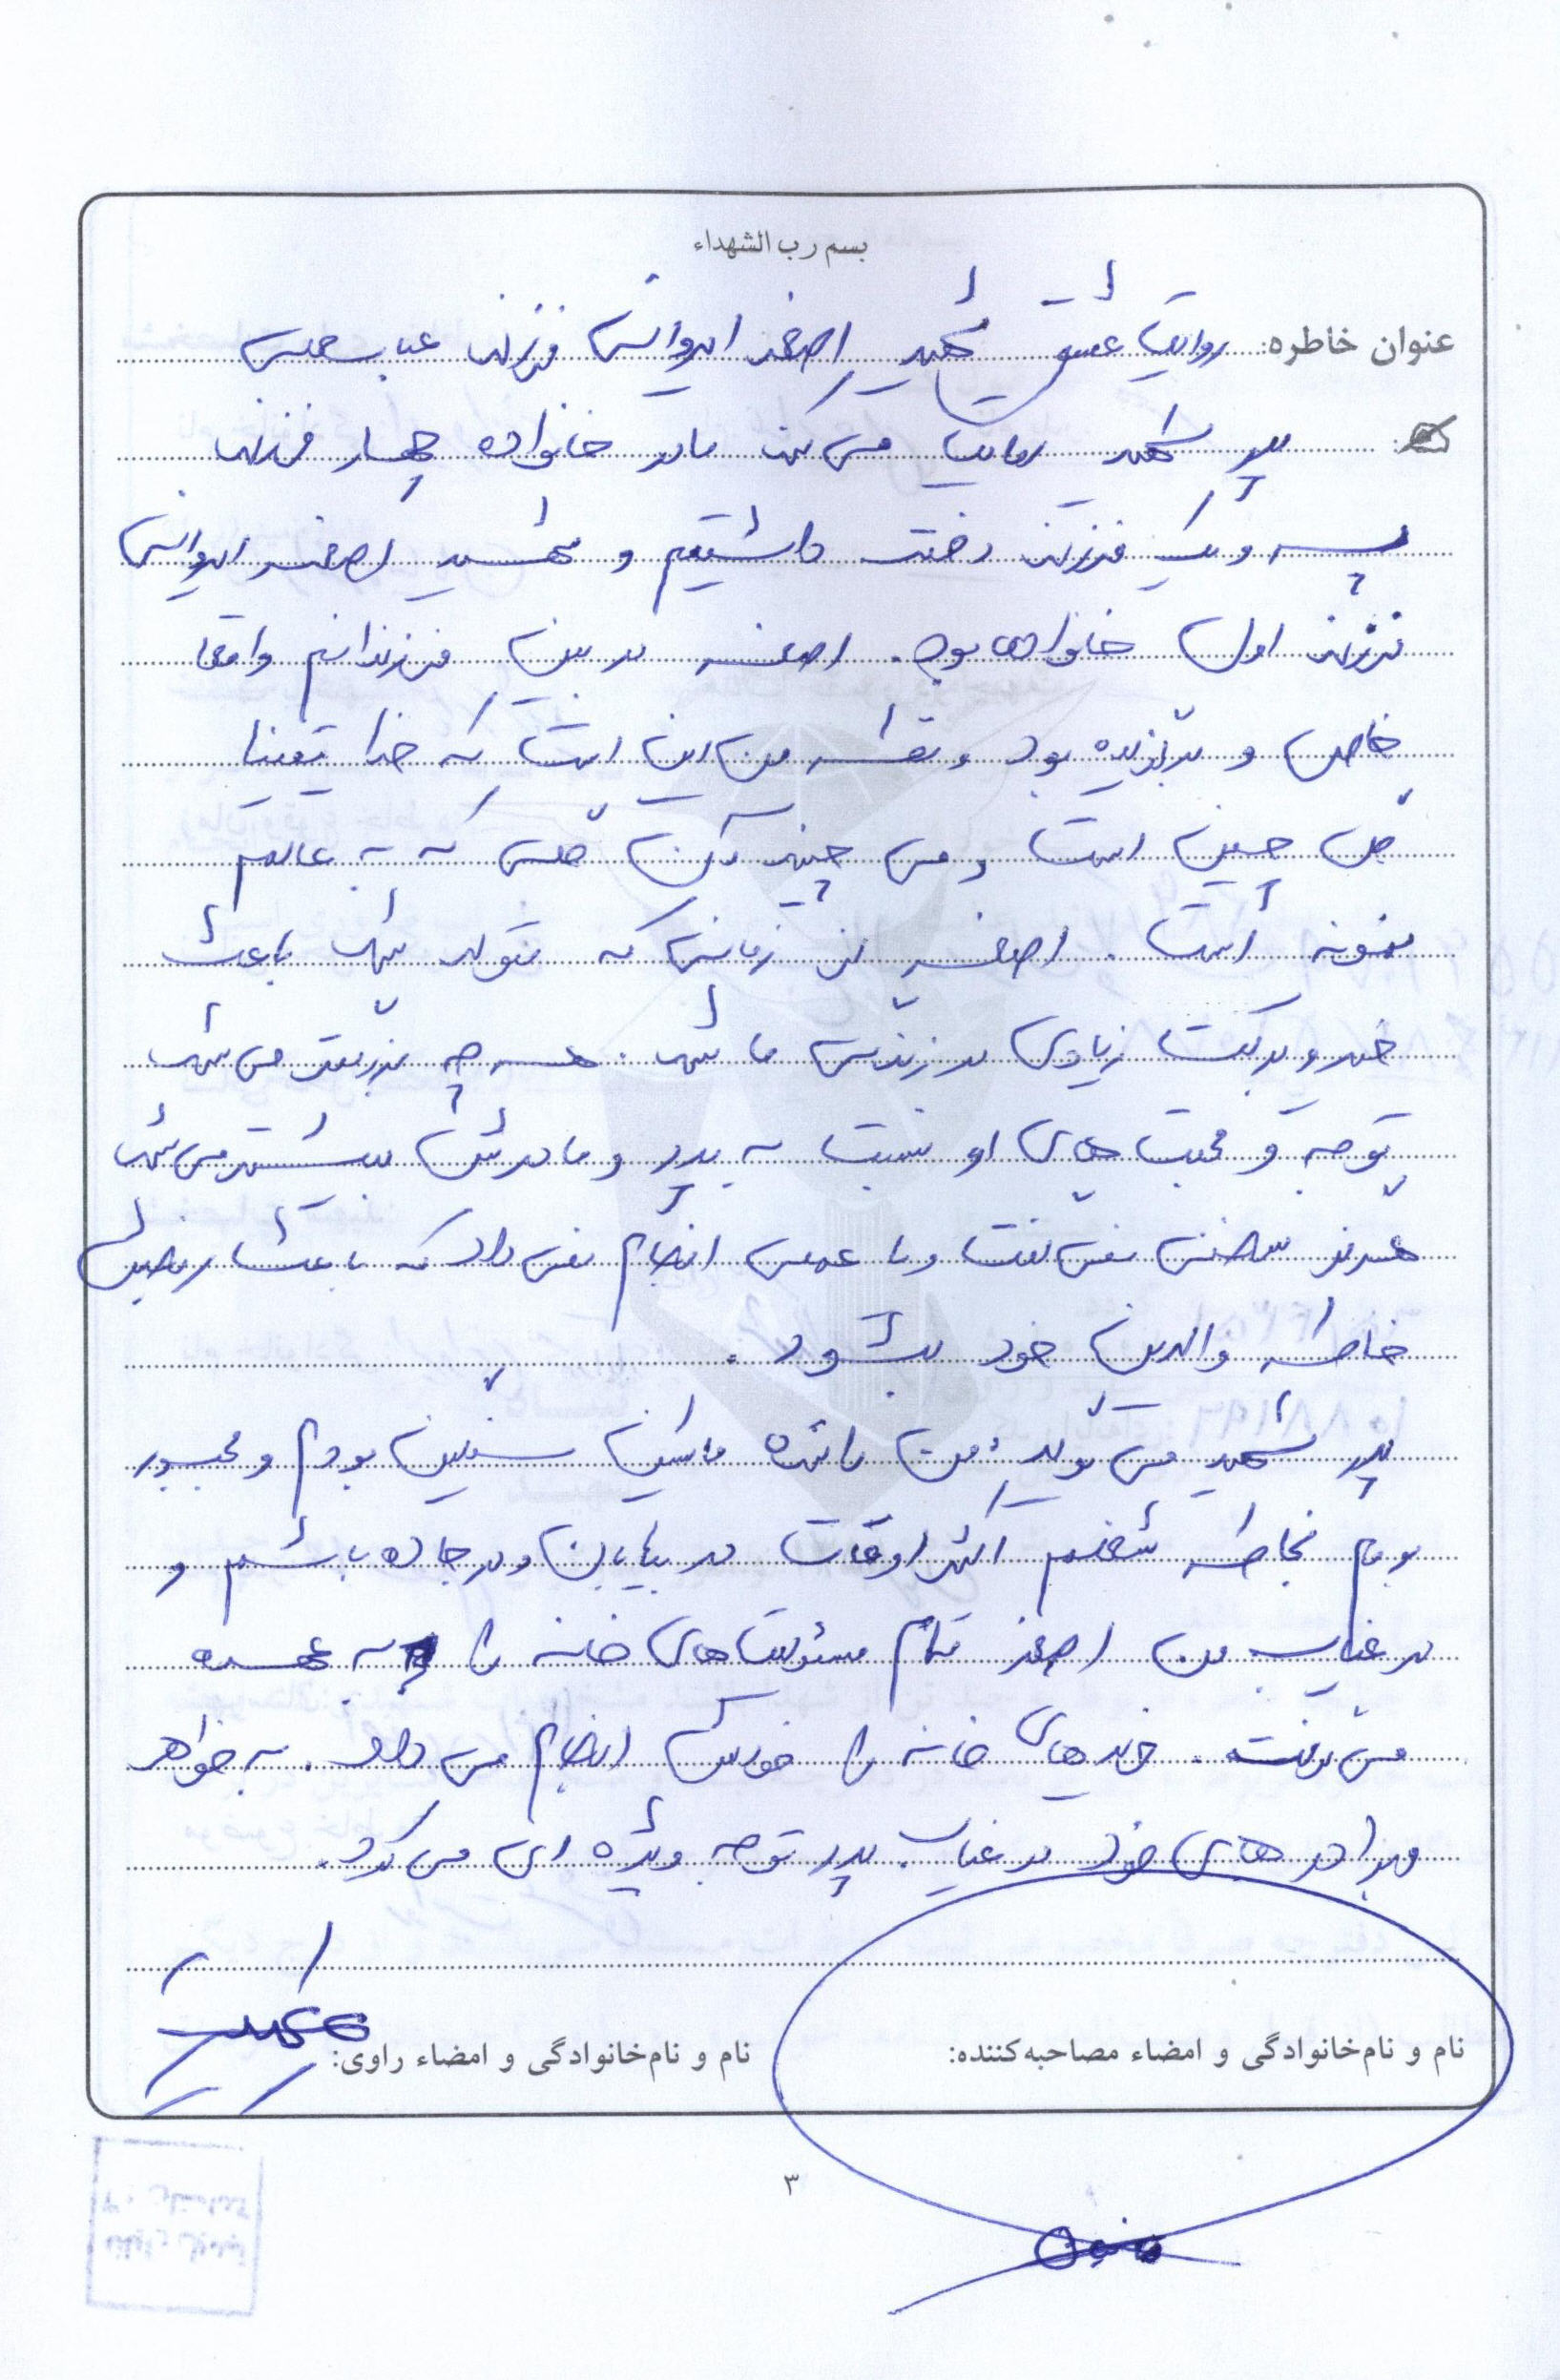 بسم رب الشهداء
عنوان خاطره: روایت عشق شهید اصغر ایروانی فرزند عباسعلی
پدر شهید روایت می کند ما در خانواده چهار فرزند
پسر و یک فرزند دختر داشتیم و شهید اصغر ایروانی
فرزند اول خانواده بود. اصغر در بین فرزندانم واقعا
خاص و برگزیده بود و نظر من این است که خدا یقینا
گل چین است و می چیند آن گلی که به عالم
نمونه است. اصغر از زمانی که متولد شد باعث
خیر و برکت زیادی در زندگی ما شد. هر چه بزرگتر می شد
توجه و محبت های او نسبت به پدر و مادرش بیشتر می شد
هرگز سخنی نمی گفت و یا عملی انجام نمی داد که باعث رنجش
خاطر والدین خود بشود.
پدر شهید می گوید: من راننده ماشین سنگین بودم و مجبور
بودم بخاطر شغلم اکثر اوقات در بیابان و در جاده باشم و
در غیاب من اصغر تمام مسئولیت های خانه را به عهده
می گرفت. خریدهای خانه را خودش انجام می داد. به خواهر
وبرادر های خود در غیاب پدر توجه ویژه ای می کرد.
نام و نام‌خانوادگی و امضاء مصاحبه‌کننده:
نام و نام‌خانوادگی و امضاء راوی:
۳